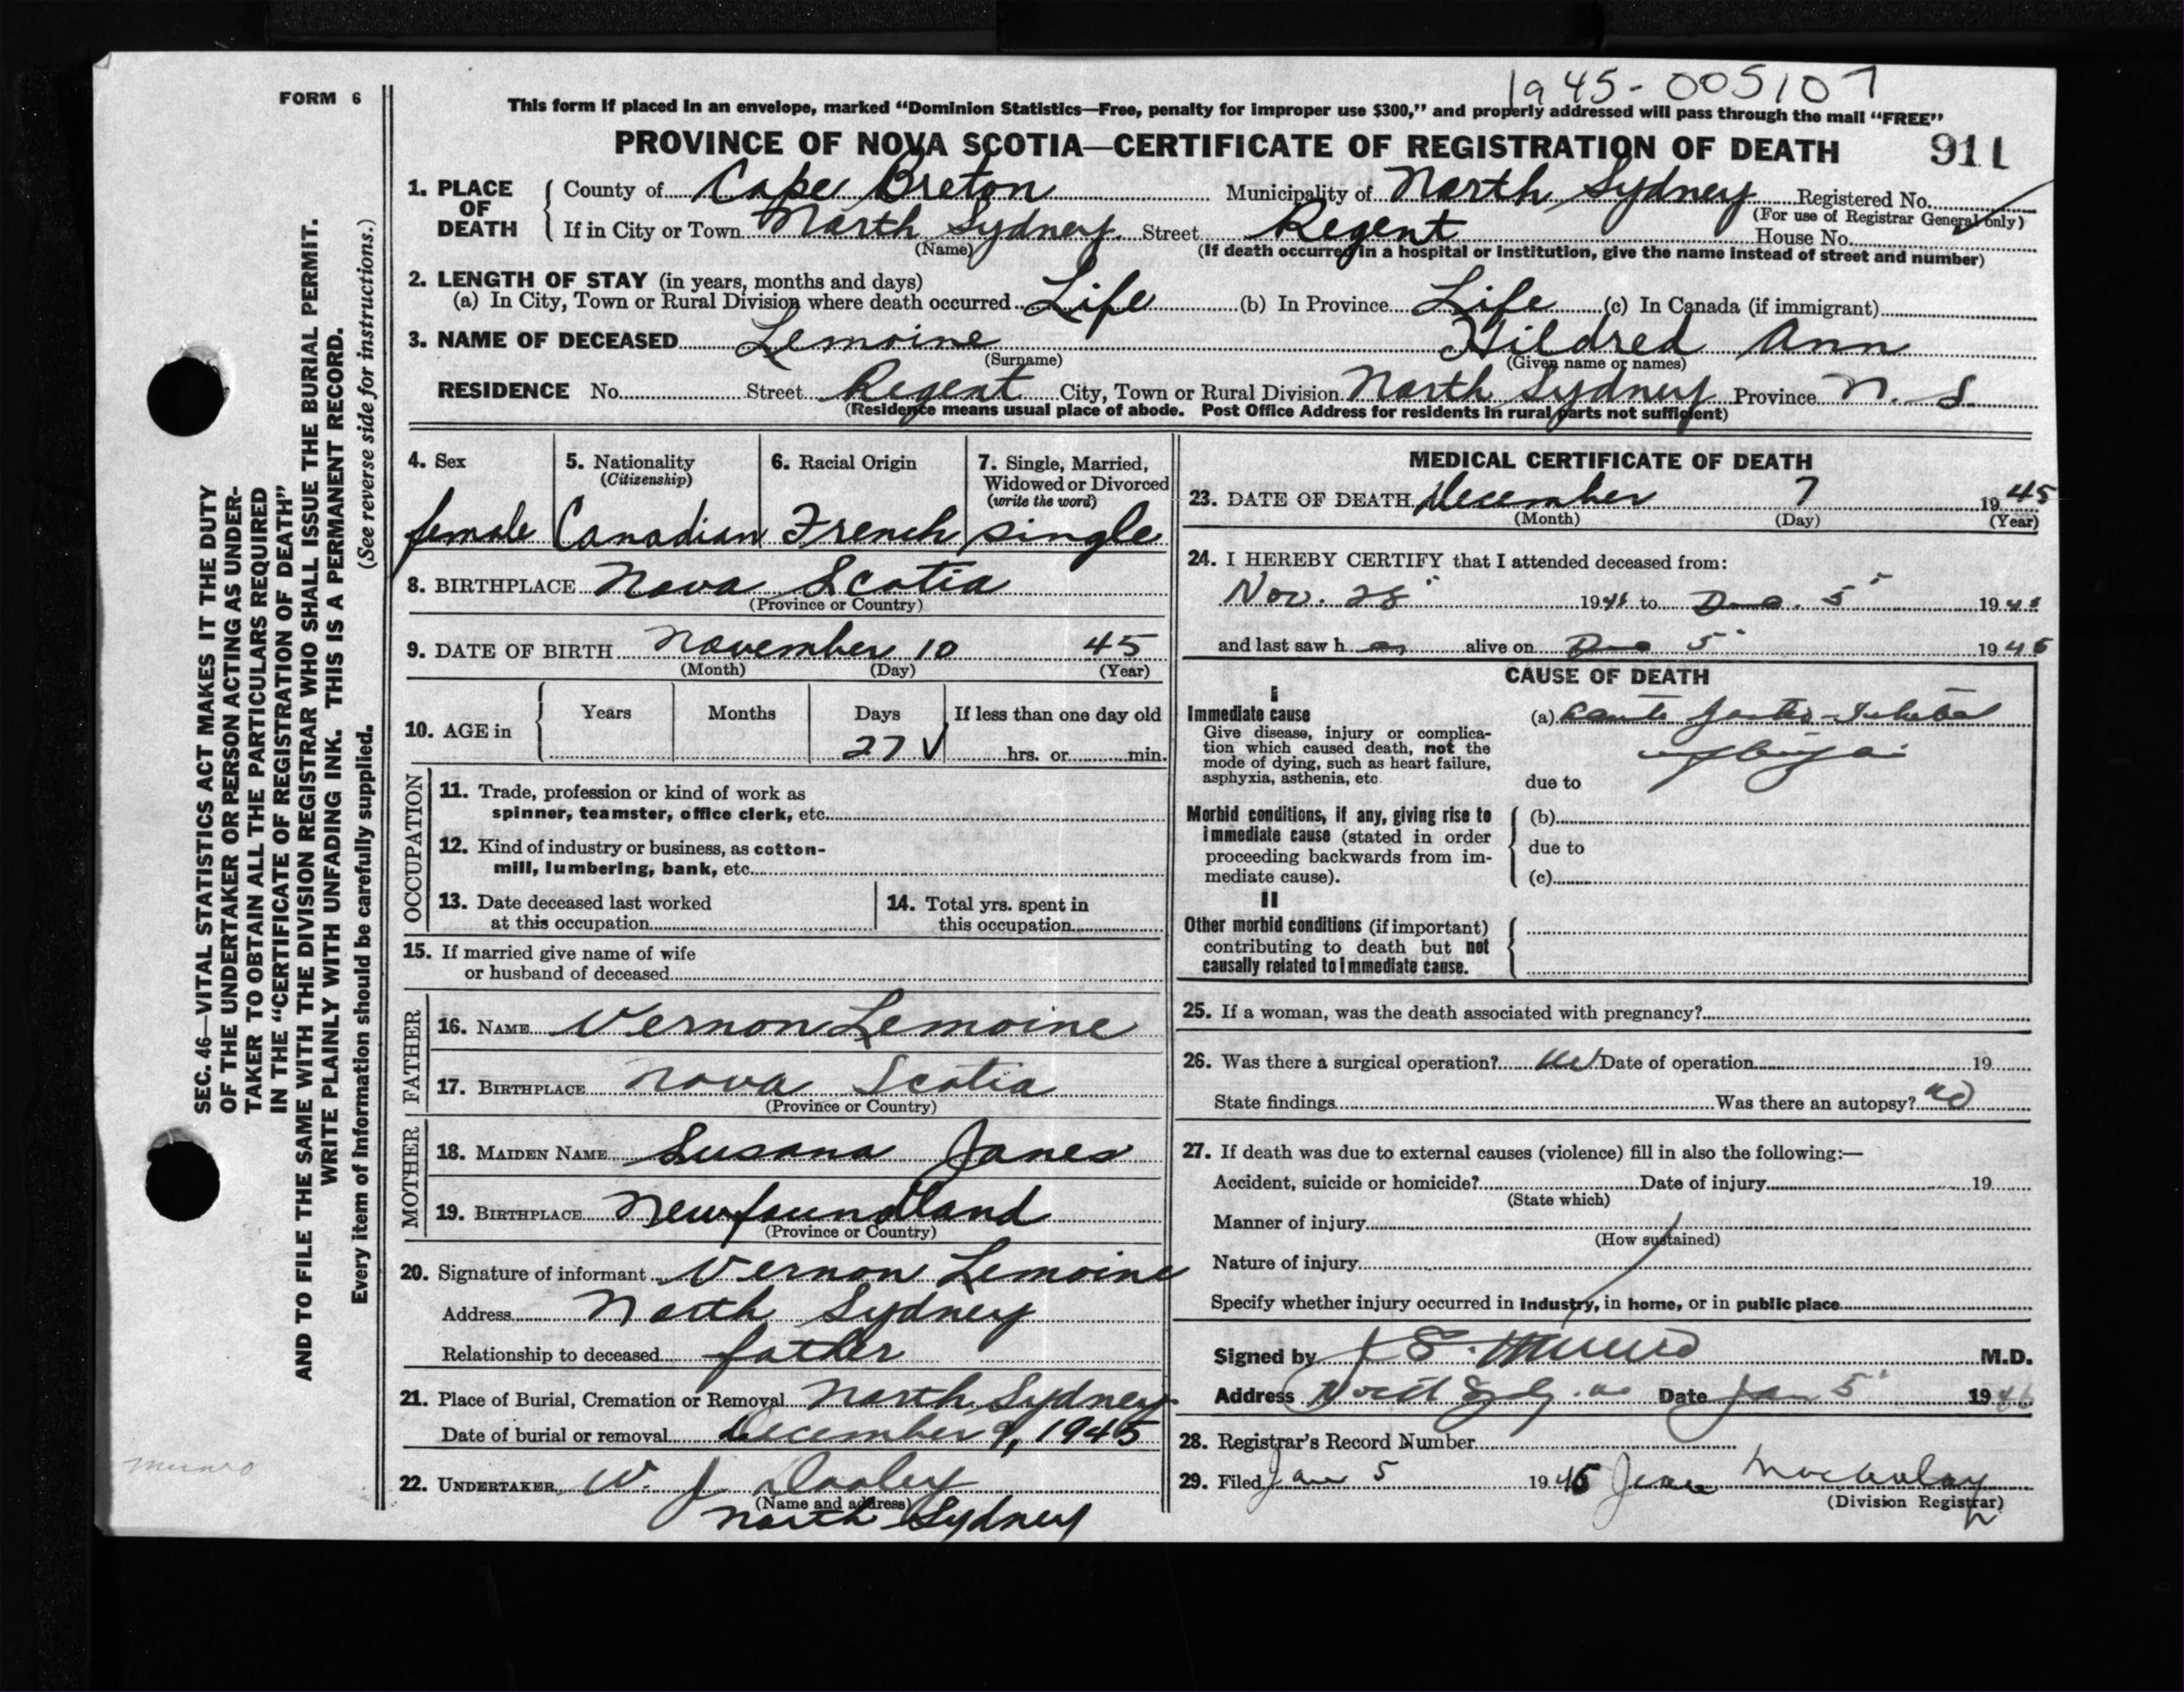 1945-005107
FORM 6
This form if placed in an envelope, marked "Dominion Statistics—Free, penalty for improper use $300," and properly addressed will pass through the mail "FREE"
PROVINCE OF NOVA SCOTIA—CERTIFICATE OF REGISTRATION OF DEATH 911
1. PLACE OF DEATH County of Cape Breton Municipality of North Sydney Registered No.
(For use of Registrar General only)
If in City or Town North Sydney Street Regent House No.
(Name) (If death occurred in a hospital or institution, give the name instead of street and number)
2. LENGTH OF STAY (in years, months and days)
(a) In City, Town or Rural Division where death occurred Life (b) In Province Life (c) In Canada (if immigrant)
3. NAME OF DECEASED Lemoine Hildred Ann
(Surname) (Given name or names)
RESIDENCE No. Street Regent City, Town or Rural Division North Sydney Province N. S.
(Residence means usual place of abode. Post Office Address for residents in rural parts not sufficient)
4. Sex
female
5. Nationality
(Citizenship)
Canadian
6. Racial Origin
French
7. Single, Married,
Widowed or Divorced
(write the word)
single
8. BIRTHPLACE Nova Scotia
(Province or Country)
9. DATE OF BIRTH November 10 45
(Month) (Day) (Year)
10. AGE in Years Months Days If less than one day old
27 hrs. or min.
OCCUPATION
11. Trade, profession or kind of work as
spinner, teamster, office clerk, etc.
12. Kind of industry or business, as cotton-
mill, lumbering, bank, etc.
13. Date deceased last worked
at this occupation
14. Total yrs. spent in
this occupation
15. If married give name of wife
or husband of deceased
FATHER
16. NAME Vernon Lemoine
17. BIRTHPLACE Nova Scotia
(Province or Country)
MOTHER
18. MAIDEN NAME Susana Janes
19. BIRTHPLACE Newfoundland
(Province or Country)
20. Signature of informant Vernon Lemoine
Address North Sydney
Relationship to deceased father
21. Place of Burial, Cremation or Removal North Sydney
Date of burial or removal December 9, 1945
22. UNDERTAKER W. J. Dooley
(Name and address)
North Sydney
MEDICAL CERTIFICATE OF DEATH
23. DATE OF DEATH December 7 1945
(Month) (Day) (Year)
24. I HEREBY CERTIFY that I attended deceased from:
Nov. 28 19 to Dec. 5 19
and last saw h alive on Dec 5 1945
CAUSE OF DEATH
I
Immediate cause
Give disease, injury or complica-
tion which caused death, not the
mode of dying, such as heart failure,
asphyxia, asthenia, etc.
(a)
due to
Morbid conditions, if any, giving rise to
immediate cause (stated in order
proceeding backwards from im-
mediate cause).
(b)
due to
(c)
II
Other morbid conditions (if important)
contributing to death but not
causally related to immediate cause.
25. If a woman, was the death associated with pregnancy?
26. Was there a surgical operation? no Date of operation 19
State findings Was there an autopsy? no
27. If death was due to external causes (violence) fill in also the following:—
Accident, suicide or homicide? Date of injury 19
(State which)
Manner of injury
(How sustained)
Nature of injury
Specify whether injury occurred in industry, in home, or in public place
Signed by Munro M.D.
Address North Date Jan 5 1946
28. Registrar's Record Number
29. Filed Jan 5 19 Jean
(Division Registrar)
SEC. 46—VITAL STATISTICS ACT MAKES IT THE DUTY
OF THE UNDERTAKER OR PERSON ACTING AS UNDER-
TAKER TO OBTAIN ALL THE PARTICULARS REQUIRED
IN THE "CERTIFICATE OF REGISTRATION OF DEATH"
AND TO FILE THE SAME WITH THE DIVISION REGISTRAR WHO SHALL ISSUE THE BURIAL PERMIT.
WRITE PLAINLY WITH UNFADING INK. THIS IS A PERMANENT RECORD.
Every item of information should be carefully supplied. (See reverse side for instructions.)
Munro